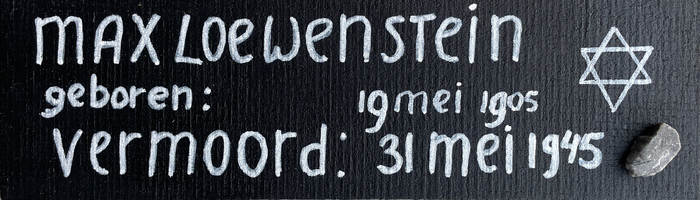 MAX LOEWENSTEIN
geboren: 19 mei 1905
vermoord: 31 mei 1945